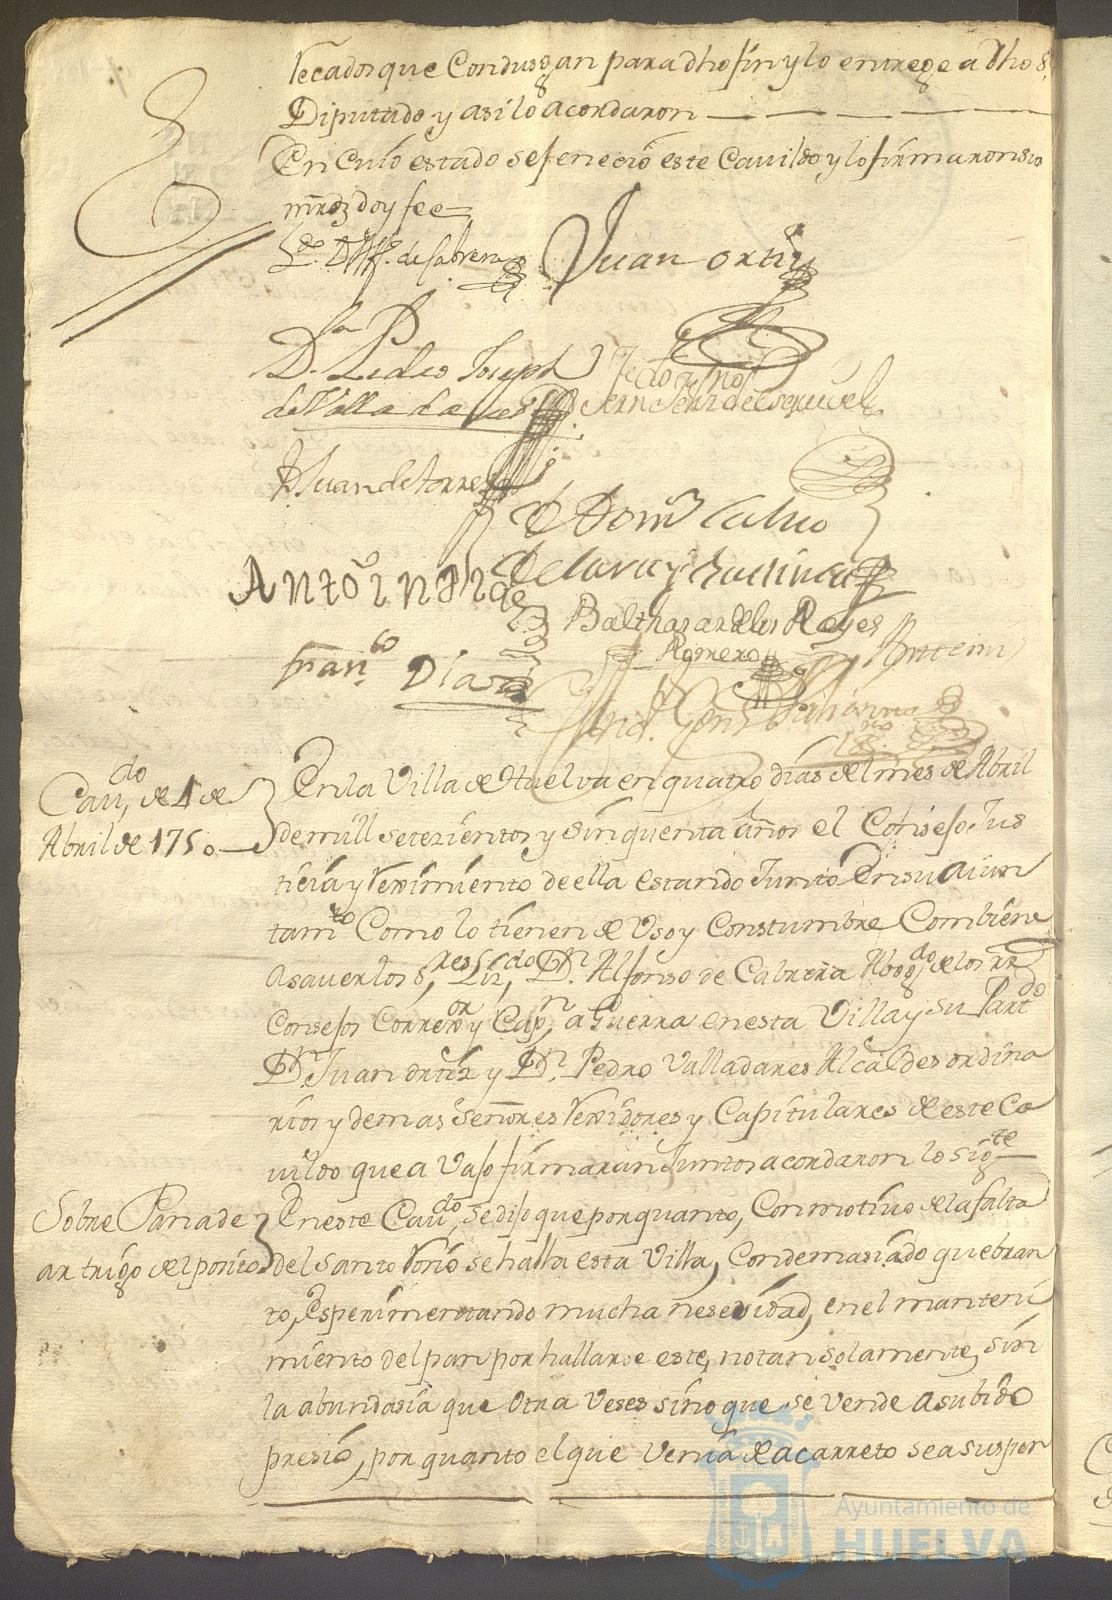 recados que Condusgan para dho fin y lo entrege a dho Sr
Diputado y asi lo acordaron
En Cuio estado sefenecio este Cauildo y lo firmaron sus
mrdz doy fee
Ldo. Dn Alfo. de Cabrera
Juan ortiz
Dn. Pedro Joseph
de Valladares
Juan de torres
Domo Calvo
Balthazar de los Reyes
Romero
Anto
franco Dias
Ante mi
Caudo, de 4 de
Abril de 1750
En la Villa de Huelva en quatro dias del mes de Abril
de mill setezientos y sinquenta años el Consejo Jus
ticia y Reximiento de ella estando Junto En su aiun
tamto Como lo tienen de Vso y Constumbre Combiene
Asauer los Sres Lizdo, Dn. Alfonso de Cabrera Abogdo de los RRs
Consejos Correxor y Capn, a Guerra en esta Villa y su Partdo
Dn. Juan ortiz y Dn. Pedro Valladares Alcaldes ordina
rios y demas Señores Rexidores y Capitulares de este Ca
uildo que a Vajo firmaran Juntos acordaron lo sigte
Sobre Panade
ar trigo del posito
En este Caudo, se dijo que por quanto, Con motiuo de la falta
del santo Rocio se halla esta Villa, Con demasiado quebran
to, Esperimentando mucha nesesidad, en el manteni
miento del pan por hallarse este, no tan solamente, sin
la abundasia que otra Veses sino que se vende a subido
presio, por quanto el que Venia de acarreto se a suspen
Ayuntamiento de
HUELVA